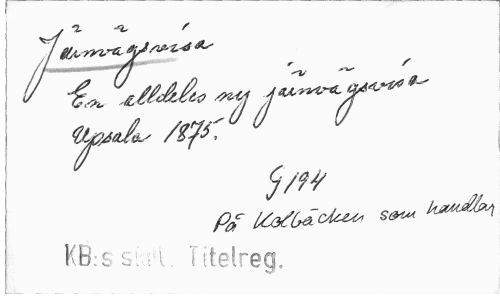 Järnvägsvisa
En alldeles ny järnvägsvisa
Upsala 1875.
G 194
På Kolbäcken som handlar
KB:s Titelreg.